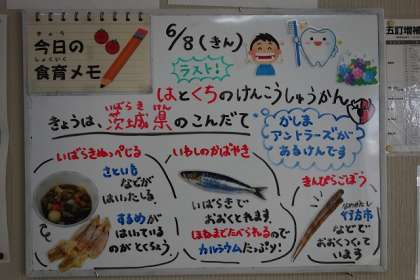 きょう
今日の
しょくいく
食育メモ
6/8(きん)
ラスト!
はとくちのけんこうしゅうかん
いばらきけん
きょうは、茨城県のこんだて
かしま
アントラーズが
あるけんです
いばらきぬっぺじる
さといも
などが
はいったしる。
するめが
はいっている
のがとくちょう。
いわしのかばやき
いばらきで
おおくとれます。
ほねまでたべられるので
カルシウムたっぷり!
きんぴらごぼう
なめがたし
行方市
などで
おおくつくって
います
五訂増補